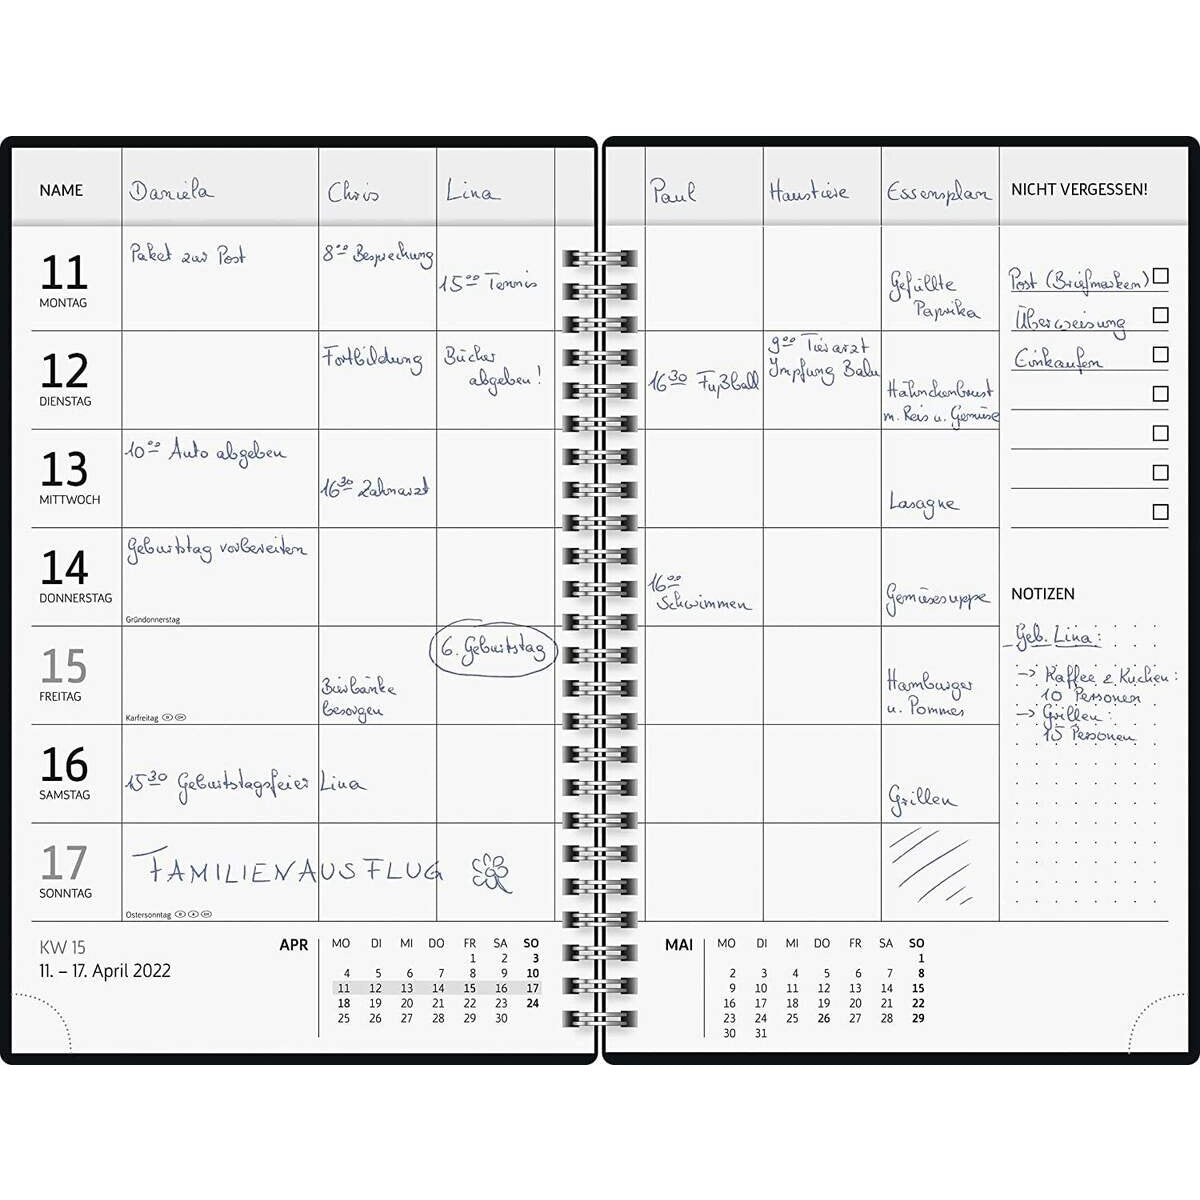 NAME Daniela Chris Lina Paul Haustiere Essensplan NICHT VERGESSEN!
11
MONTAG
Paket zur Post
8⁰⁰ Besprechung
15⁰⁰ Tennis
Gefüllte
Paprika
12
DIENSTAG
Fortbildung
Bücher
abgeben!
16³⁰ Fußball
9⁰⁰ Tierarzt
Impfung Balu
Hähnchenbrust
m. Reis u. Gemüse
13
MITTWOCH
10⁰⁰ Auto abgeben
16³⁰ Zahnarzt
Lasagne
14
DONNERSTAG
Geburtstag vorbereiten
Gründonnerstag
16⁰⁰
Schwimmen
Gemüsesuppe
15
FREITAG
Karfreitag
Bierbänke
besorgen
6. Geburtstag
Hamburger
u. Pommes
16
SAMSTAG
15³⁰ Geburtstagsfeier Lina
Grillen
17
SONNTAG
FAMILIENAUSFLUG
Ostersonntag
Post (Briefmarken)
Überweisung
Einkaufen
NOTIZEN
Geb. Lina:
-> Kaffee & Kuchen:
10 Personen
-> Grillen:
15 Personen
KW 15
11. – 17. April 2022
APR MO DI MI DO FR SA SO
1 2 3
4 5 6 7 8 9 10
11 12 13 14 15 16 17
18 19 20 21 22 23 24
25 26 27 28 29 30
MAI MO DI MI DO FR SA SO
1
2 3 4 5 6 7 8
9 10 11 12 13 14 15
16 17 18 19 20 21 22
23 24 25 26 27 28 29
30 31